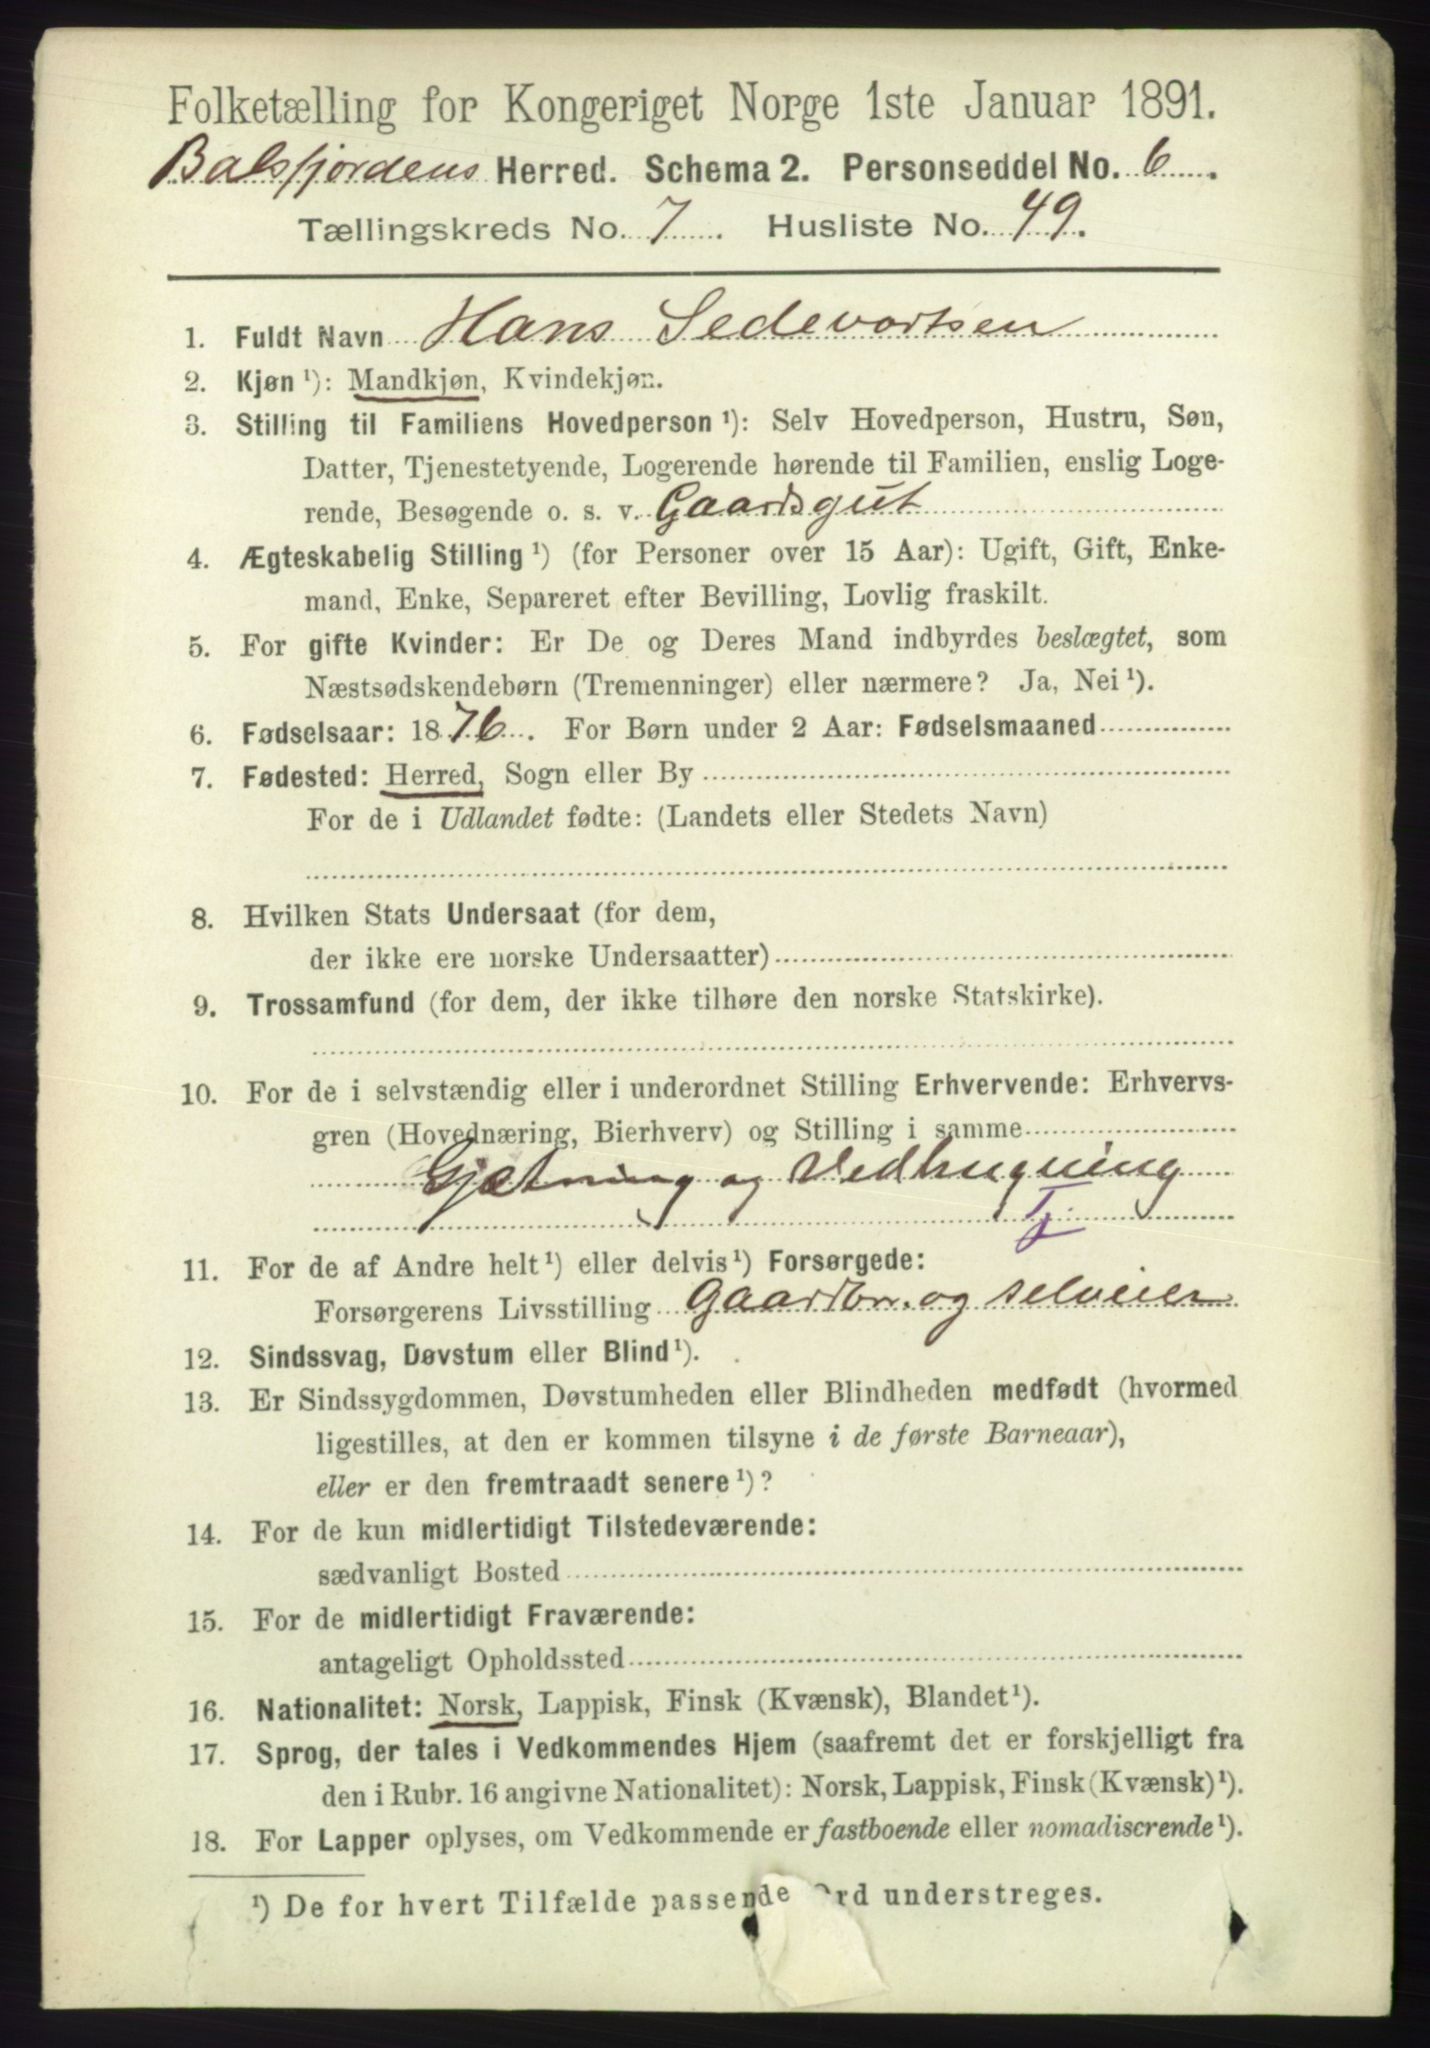 Folketælling for Kongeriget Norge 1ste Januar 1891.
Balsfjordens Herred. Schema 2. Personseddel No. 6.
Tællingskreds No. 7. Husliste No. 49.
1. Fuldt Navn Hans Sedevartsen
2. Kjøn ¹): Mandkjøn, Kvindekjøn.
3. Stilling til Familiens Hovedperson ¹): Selv Hovedperson, Hustru, Søn,
Datter, Tjenestetyende, Logerende hørende til Familien, enslig Loge-
rende, Besøgende o. s. v. Gaardsgut
4. Ægteskabelig Stilling ¹) (for Personer over 15 Aar): Ugift, Gift, Enke-
mand, Enke, Separeret efter Bevilling, Lovlig fraskilt.
5. For gifte Kvinder: Er De og Deres Mand indbyrdes beslægtet, som
Næstsødskendebørn (Tremenninger) eller nærmere? Ja, Nei ¹).
6. Fødselsaar: 1876. For Børn under 2 Aar: Fødselsmaaned
7. Fødested: Herred, Sogn eller By
For de i Udlandet fødte: (Landets eller Stedets Navn)
8. Hvilken Stats Undersaat (for dem,
der ikke ere norske Undersaatter)
9. Trossamfund (for dem, der ikke tilhøre den norske Statskirke).
10. For de i selvstændig eller i underordnet Stilling Erhvervende: Erhvervs-
gren (Hovednæring, Bierhverv) og Stilling i samme
Gjætning og Vedhugning
11. For de af Andre helt ¹) eller delvis ¹) Forsørgede:
Forsørgerens Livsstilling Gaardbr. og selveier
12. Sindssvag, Døvstum eller Blind ¹).
13. Er Sindssygdommen, Døvstumheden eller Blindheden medfødt (hvormed
ligestilles, at den er kommen tilsyne i de første Barneaar),
eller er den fremtraadt senere ¹)?
14. For de kun midlertidigt Tilstedeværende:
sædvanligt Bosted
15. For de midlertidigt Fraværende:
antageligt Opholdssted
16. Nationalitet: Norsk, Lappisk, Finsk (Kvænsk), Blandet ¹).
17. Sprog, der tales i Vedkommendes Hjem (saafremt det er forskjelligt fra
den i Rubr. 16 angivne Nationalitet): Norsk, Lappisk, Finsk (Kvænsk) ¹).
18. For Lapper oplyses, om Vedkommende er fastboende eller nomadiserende ¹).
¹) De for hvert Tilfælde passende Ord understreges.